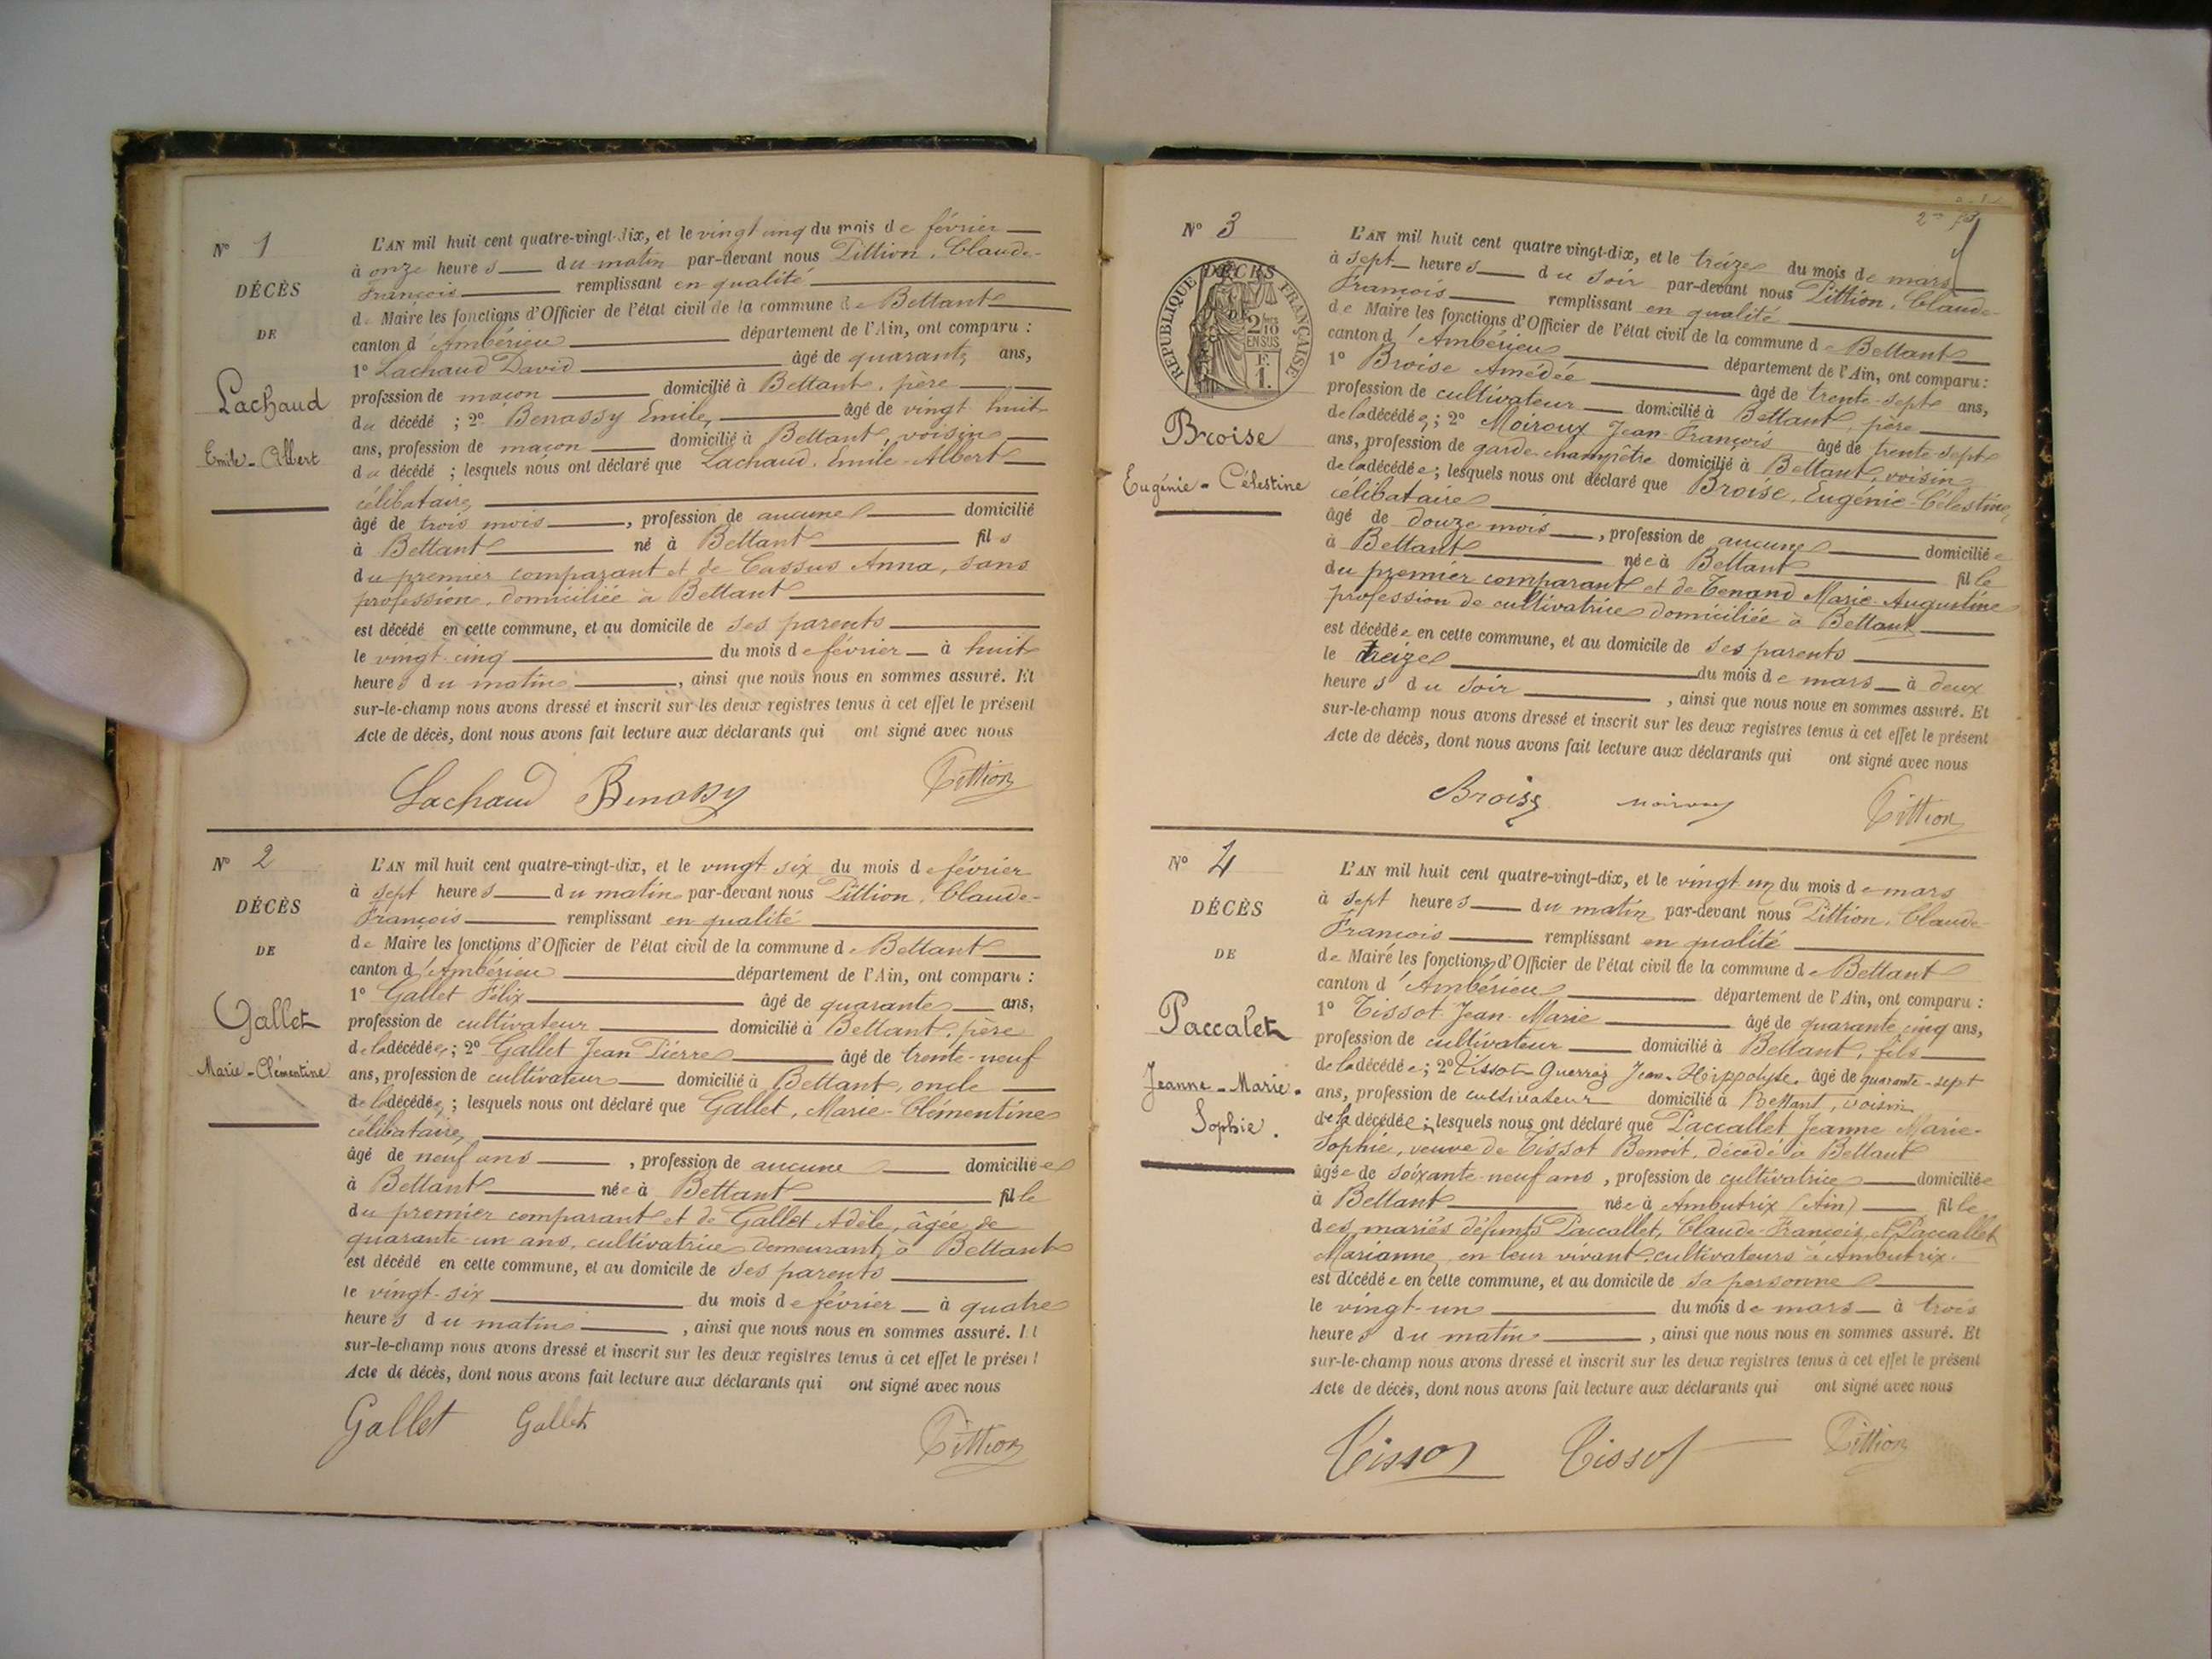 N° 1
DÉCÈS
DE
Lachaud
Emile-Albert
L'AN mil huit cent quatre-vingt-dix, et le vingt cinq du mois de février
à onze heures du matin par-devant nous Pittion, Claude-
François remplissant en qualité
de Maire les fonctions d'Officier de l'état civil de la commune de Bettant
canton d'Ambérieu département de l'Ain, ont comparu :
1° Lachaud David âgé de quarante ans,
profession de maçon domicilié à Bettant, père
du décédé ; 2° Benassy Emile, âgé de vingt huit
ans, profession de maçon domicilié à Bettant, voisin
du décédé ; lesquels nous ont déclaré que Lachaud, Emile-Albert
célibataire
âgé de trois mois, profession de aucune domicilié
à Bettant né à Bettant fils
du premier comparant et de Cassus Anna, sans
profession, domiciliée à Bettant
est décédé en cette commune, et au domicile de ses parents
le vingt-cinq du mois de février à huit
heures du matin, ainsi que nous nous en sommes assuré. Et
sur-le-champ nous avons dressé et inscrit sur les deux registres tenus à cet effet le présent
Acte de décès, dont nous avons fait lecture aux déclarants qui ont signé avec nous
Lachaud Benassy Pittion
N° 2
DÉCÈS
DE
Gallet
Marie-Clémentine
L'AN mil huit cent quatre-vingt-dix, et le vingt six du mois de février
à sept heures du matin par-devant nous Pittion, Claude-
François remplissant en qualité
de Maire les fonctions d'Officier de l'état civil de la commune de Bettant
canton d'Ambérieu département de l'Ain, ont comparu :
1° Gallet Félix âgé de quarante ans,
profession de cultivateur domicilié à Bettant, père
de la décédée ; 2° Gallet Jean Pierre âgé de trente-neuf
ans, profession de cultivateur domicilié à Bettant, oncle
de la décédée ; lesquels nous ont déclaré que Gallet, Marie-Clémentine
célibataire,
âgé de neuf ans, profession de aucune domiciliée
à Bettant née à Bettant fille
du premier comparant et de Gallet Adèle, âgée de
quarante-un ans, cultivatrice demeurant à Bettant
est décédé en cette commune, et au domicile de ses parents
le vingt-six du mois de février à quatre
heures du matin, ainsi que nous nous en sommes assuré. Et
sur-le-champ nous avons dressé et inscrit sur les deux registres tenus à cet effet le présent
Acte de décès, dont nous avons fait lecture aux déclarants qui ont signé avec nous
Gallet Gallet Pittion
N° 3
RÉPUBLIQUE FRANÇAISE
2/10
EN SUS
F.
1.
DÉCÈS
DE
Broise
Eugénie-Célestine
L'AN mil huit cent quatre vingt-dix, et le treize du mois de mars
à sept heures du soir par-devant nous Pittion, Claude-
François remplissant en qualité
de Maire les fonctions d'Officier de l'état civil de la commune de Bettant
canton d'Ambérieu département de l'Ain, ont comparu :
1° Broise Amédée âgé de trente-sept ans,
profession de cultivateur domicilié à Bettant, père
de la décédée ; 2° Moiroux Jean-François âgé de trente sept
ans, profession de garde champêtre domicilié à Bettant, voisin
de la décédée ; lesquels nous ont déclaré que Broise, Eugénie-Célestine,
célibataire
âgé de douze mois, profession de aucune domiciliée
à Bettant née à Bettant fille
du premier comparant et de Tenand Marie-Augustine
profession de cultivatrice domiciliée à Bettant
est décédée en cette commune, et au domicile de ses parents
le treize du mois de mars à deux
heures du soir, ainsi que nous nous en sommes assuré. Et
sur-le-champ nous avons dressé et inscrit sur les deux registres tenus à cet effet le présent
Acte de décès, dont nous avons fait lecture aux déclarants qui ont signé avec nous
Broise Moiroux Pittion
N° 4
DÉCÈS
DE
Paccalet
Jeanne-Marie-
Sophie.
L'AN mil huit cent quatre-vingt-dix, et le vingt un du mois de mars
à sept heures du matin par-devant nous Pittion, Claude
François remplissant en qualité
de Maire les fonctions d'Officier de l'état civil de la commune de Bettant
canton d'Ambérieu département de l'Ain, ont comparu :
1° Tissot Jean-Marie âgé de quarante cinq ans,
profession de cultivateur domicilié à Bettant, fils
de la décédée ; 2° Tissot-Guerraz Jean-Hippolyte, âgé de quarante-sept
ans, profession de cultivateur domicilié à Bettant, voisin
de la décédée ; lesquels nous ont déclaré que Paccallet Jeanne Marie-
Sophie, veuve de Tissot Benoit, décédé à Bettant
âgée de soixante-neuf ans, profession de cultivatrice domiciliée
à Bettant née à Ambutrix (Ain) fille
des mariés défunts Paccallet, Claude-François, et Paccallet
Marianne, en leur vivant cultivateurs à Ambutrix.
est décédée en cette commune, et au domicile de sa personne
le vingt-un du mois de mars à trois
heures du matin, ainsi que nous nous en sommes assuré. Et
sur-le-champ nous avons dressé et inscrit sur les deux registres tenus à cet effet le présent
Acte de décès, dont nous avons fait lecture aux déclarants qui ont signé avec nous
Tissot Tissot Pittion